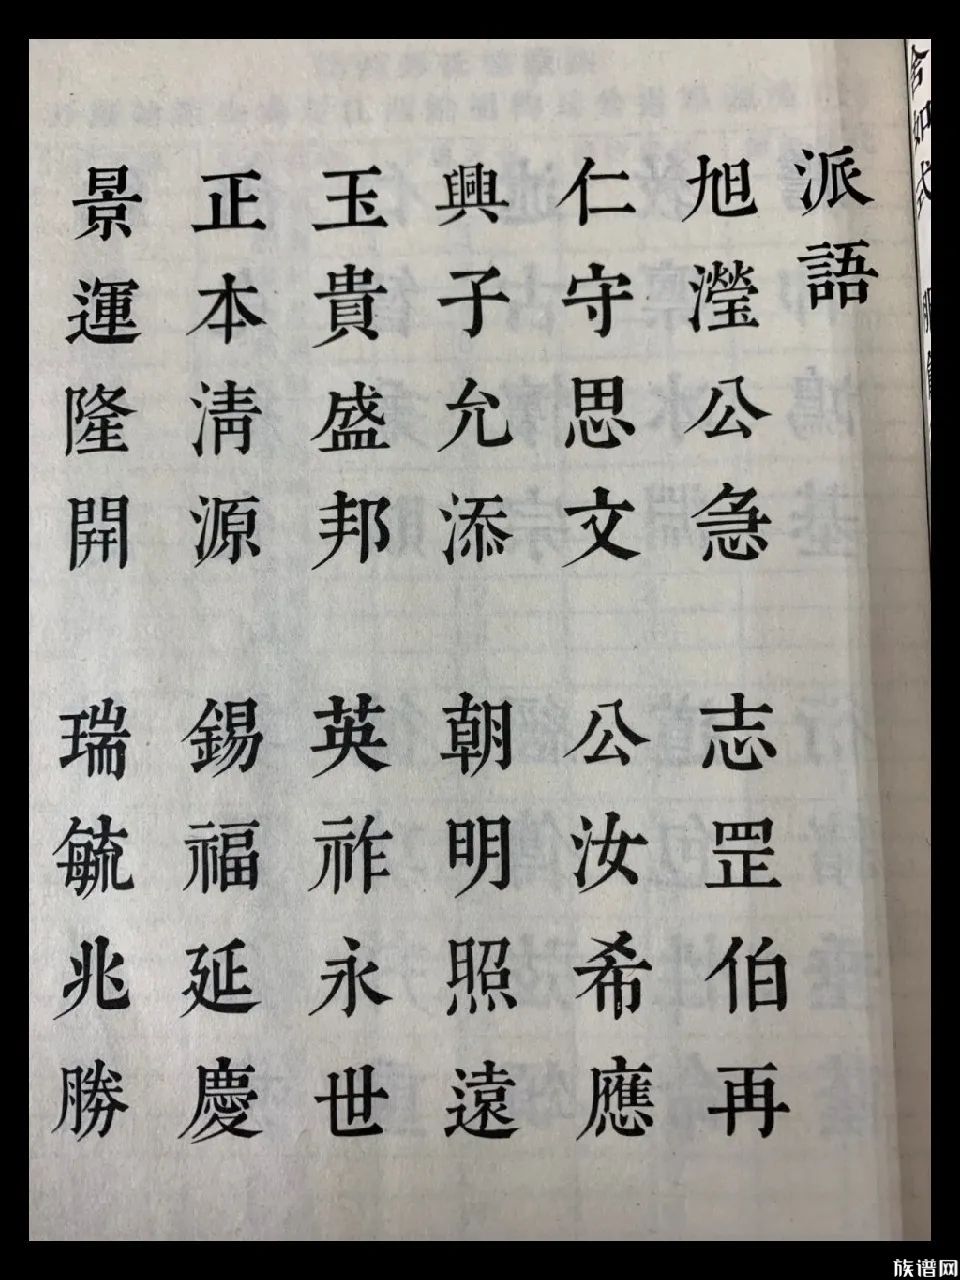 派語
旭瀅公急 志罡伯再
仁守思文 公汝希應
興子允添 朝明照遠
玉貴盛邦 英祚永世
正本淸源 錫福延慶
景運隆開 瑞毓兆勝
族谱网